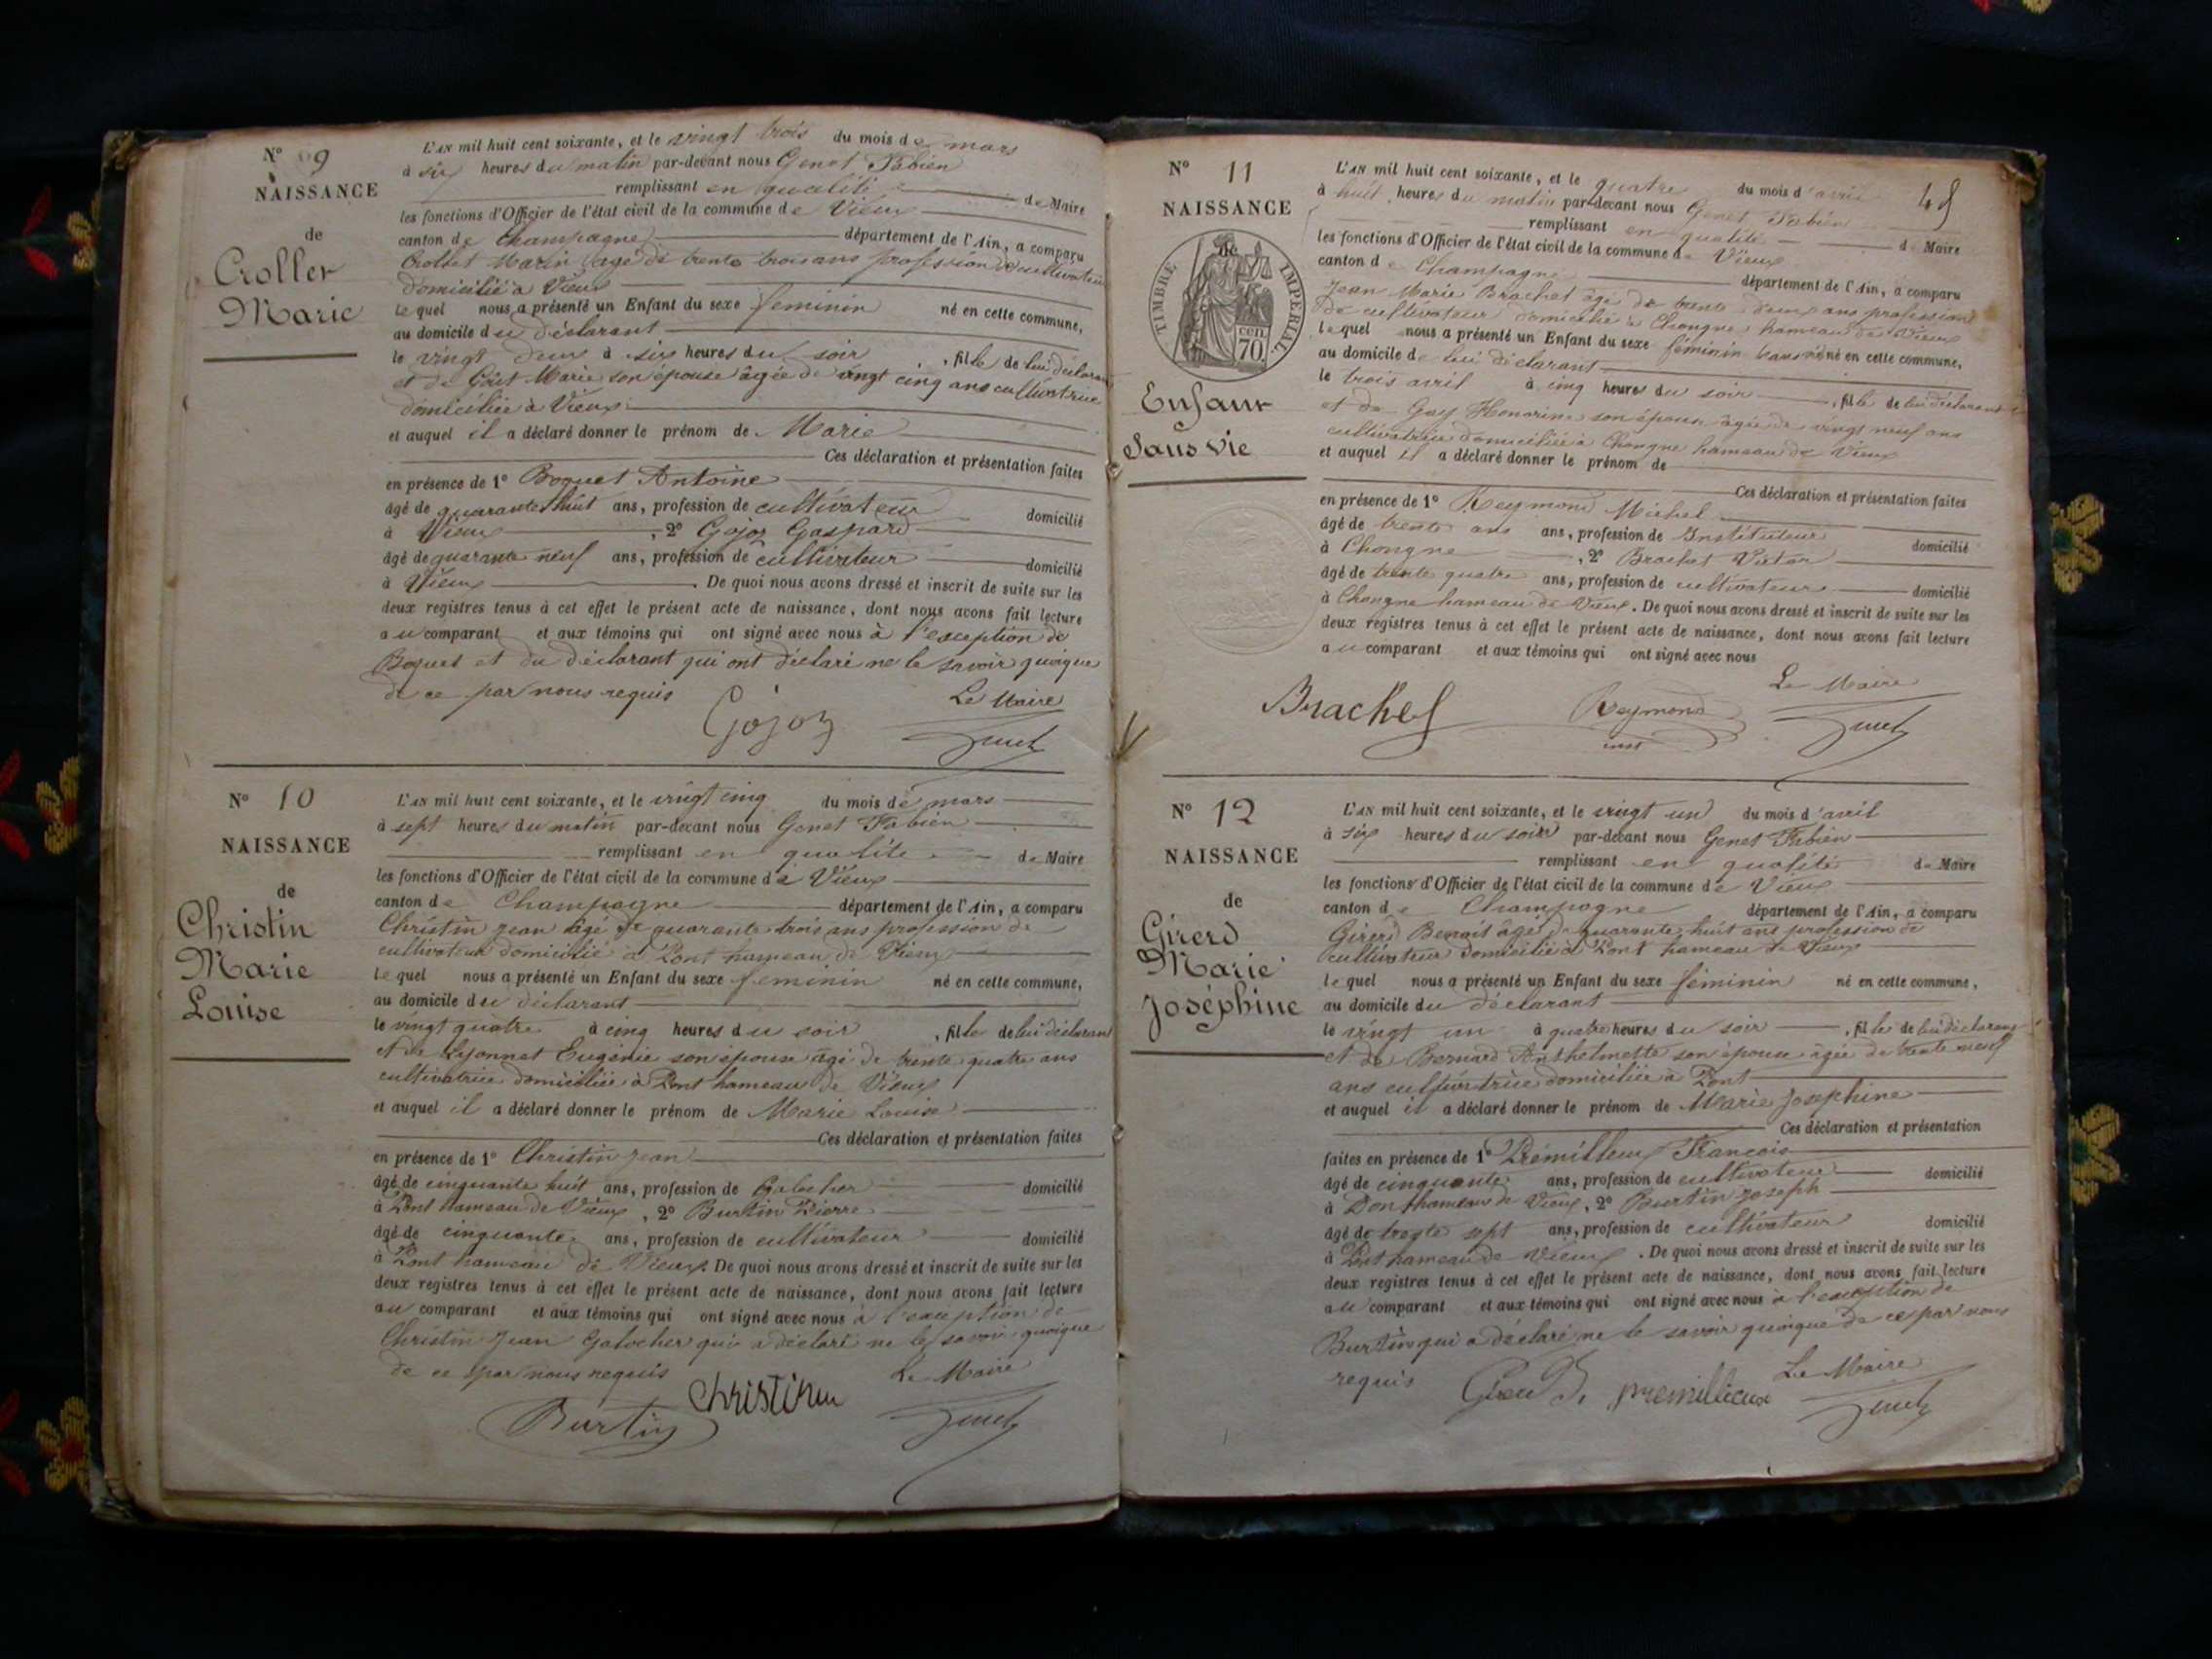 N° 9
NAISSANCE
de
Croller
Marie
L'AN mil huit cent soixante, et le vingt trois du mois de mars
à six heures du matin par-devant nous Genet Fabien
remplissant en qualité de Maire
les fonctions d'Officier de l'état civil de la commune de Vieux
canton de Champagne département de l'Ain, a comparu
Crollet Marin âgé de trente trois ans profession de cultivateur
domicilié à Vieux
lequel nous a présenté un Enfant du sexe feminin né en cette commune,
au domicile du déclarant
le vingt deux à six heures du soir, fille de lui déclarant
et de Goût Marie son épouse âgée de vingt cinq ans cultivatrice
domiciliée à Vieux
et auquel il a déclaré donner le prénom de Marie
Ces déclaration et présentation faites
en présence de 1° Boquet Antoine
âgé de quarante huit ans, profession de cultivateur domicilié
à Vieux, 2° Gojoz Gaspard
âgé de quarante neuf ans, profession de cultivateur domicilié
à Vieux. De quoi nous avons dressé et inscrit de suite sur les
deux registres tenus à cet effet le présent acte de naissance, dont nous avons fait lecture
au comparant et aux témoins qui ont signé avec nous à l'exception de
Boquet et du déclarant qui ont déclaré ne le savoir quoique
de ce par nous requis
Le Maire
Gojoz
Genet
N° 10
NAISSANCE
de
Christin
Marie
Louise
L'AN mil huit cent soixante, et le vingt cinq du mois de mars
à sept heures du matin par-devant nous Genet Fabien
remplissant en qualité de Maire
les fonctions d'Officier de l'état civil de la commune de Vieux
canton de Champagne département de l'Ain, a comparu
Christin Jean âgé de quarante trois ans profession de
cultivateur domicilié à Pont hameau de Vieux
lequel nous a présenté un Enfant du sexe feminin né en cette commune,
au domicile du déclarant
le vingt quatre à cinq heures du soir, fille de lui déclarant
et de Lyonnet Eugénie son épouse âgé de trente quatre ans
cultivatrice domiciliée à Pont hameau de Vieux
et auquel il a déclaré donner le prénom de Marie Louise
Ces déclaration et présentation faites
en présence de 1° Christin Jean
âgé de cinquante huit ans, profession de Galocher domicilié
à Pont hameau de Vieux, 2° Burtin Pierre
âgé de cinquante ans, profession de cultivateur domicilié
à Pont hameau de Vieux. De quoi nous avons dressé et inscrit de suite sur les
deux registres tenus à cet effet le présent acte de naissance, dont nous avons fait lecture
au comparant et aux témoins qui ont signé avec nous à l'exception de
Christin Jean Galocher qui a déclaré ne le savoir quoique
de ce par nous requis
Le Maire
Burtin
Genet
N° 11
NAISSANCE
de
TIMBRE IMPERIAL
70 cen
Enfant
Sans vie
L'AN mil huit cent soixante, et le quatre du mois d'avril
à huit heures du matin par-devant nous Genet Fabien
remplissant en qualité de Maire
les fonctions d'Officier de l'état civil de la commune de Vieux
canton de Champagne département de l'Ain, a comparu
Jean Marie Brachet âgé de trente deux ans profession
de cultivateur domicilié à Chongne hameau de Vieux
lequel nous a présenté un Enfant du sexe féminin sans vie né en cette commune,
au domicile de lui déclarant
le trois avril à cinq heures du soir, fille de lui déclarant
et de Gay Honorine son épouse âgée de vingt neuf ans
cultivatrice domiciliée à Chongne hameau de Vieux
et auquel il a déclaré donner le prénom de
Ces déclaration et présentation faites
en présence de 1° Reymond Michel
âgé de trente ans ans, profession de Instituteur domicilié
à Chongne, 2° Brachet Victor
âgé de trente quatre ans, profession de cultivateur domicilié
à Chongne hameau de Vieux. De quoi nous avons dressé et inscrit de suite sur les
deux registres tenus à cet effet le présent acte de naissance, dont nous avons fait lecture
au comparant et aux témoins qui ont signé avec nous
Le Maire
Brachet
Reymond
inst
Genet
N° 12
NAISSANCE
de
Girerd
Marie
Joséphine
L'AN mil huit cent soixante, et le vingt un du mois d'avril
à six heures du soir par-devant nous Genet Fabien
remplissant en qualité de Maire
les fonctions d'Officier de l'état civil de la commune de Vieux
canton de Champagne département de l'Ain, a comparu
Girerd Benoit âgé de quarante huit ans profession de
cultivateur domicilié à Pont hameau de Vieux
lequel nous a présenté un Enfant du sexe féminin né en cette commune,
au domicile du déclarant
le vingt un à quatre heures du soir, fille de lui déclarant
et de Bernard Anthelmette son épouse âgée de trente neuf
ans cultivatrice domiciliée à Pont
et auquel il a déclaré donner le prénom de Marie Josephine
Ces déclaration et présentation
faites en présence de 1° Prémillieux François
âgé de cinquante ans, profession de cultivateur domicilié
à Pont hameau de Vieux, 2° Burtin Joseph
âgé de trente sept ans, profession de cultivateur domicilié
à Pont hameau de Vieux. De quoi nous avons dressé et inscrit de suite sur les
deux registres tenus à cet effet le présent acte de naissance, dont nous avons fait lecture
au comparant et aux témoins qui ont signé avec nous à l'exception de
Burtin qui a déclaré ne le savoir quoique de ce par nous
requis
Le Maire
premillieux
Genet